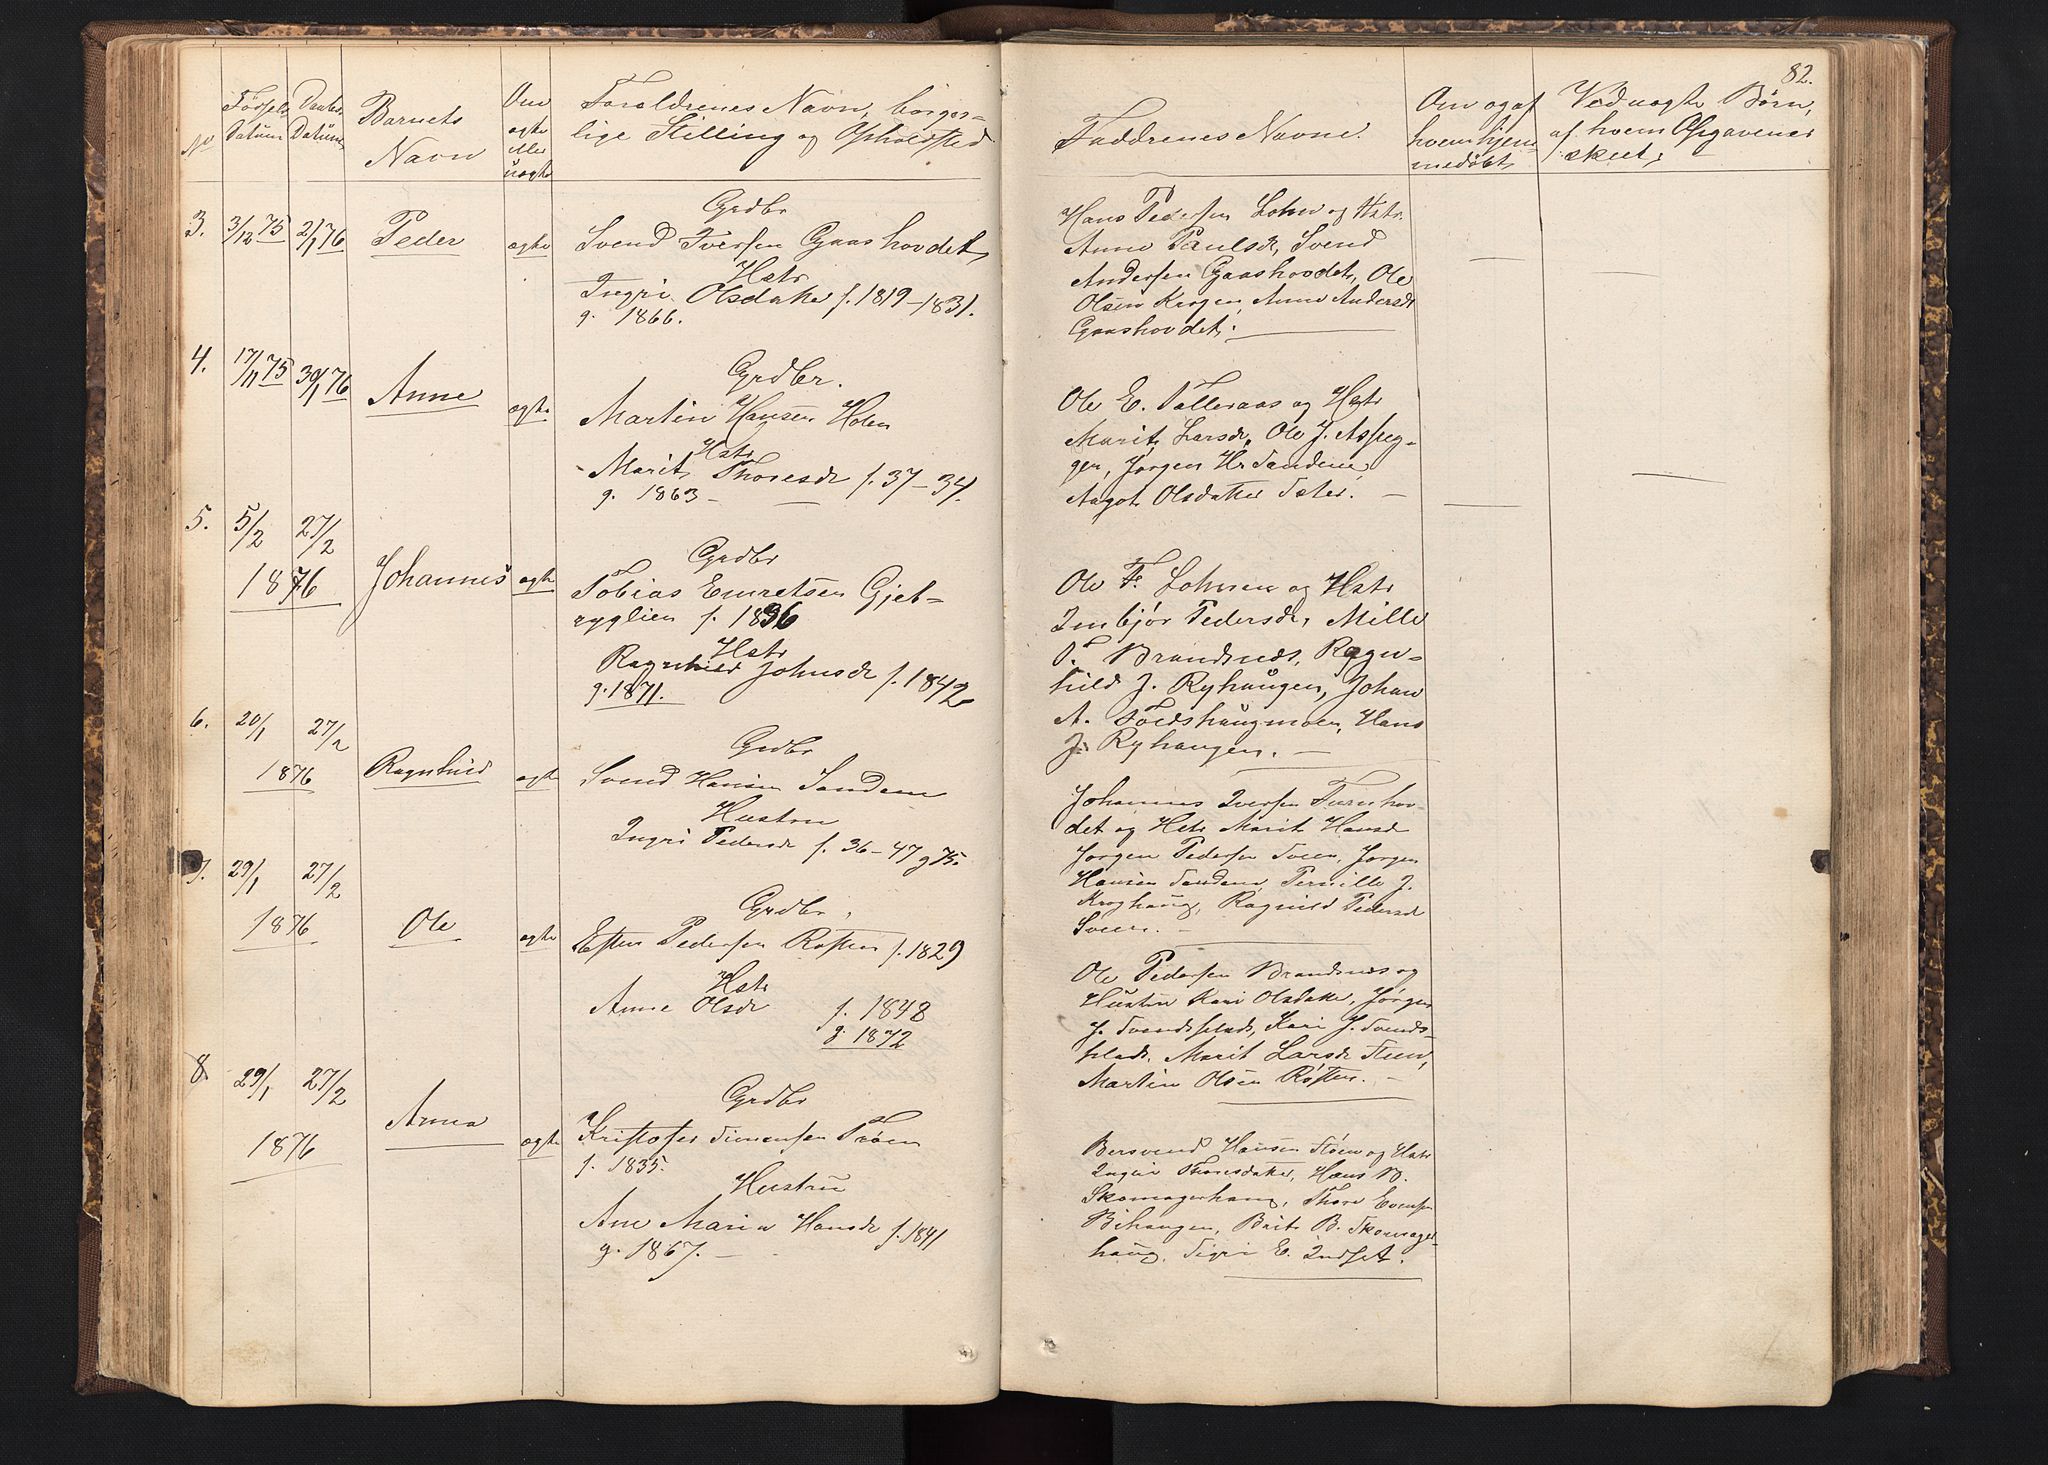 82.
No
Fødsels
Datum
Daabs
Datum
Barnets
Navn
Om
ægte
eller
uægte
Forældrenes Navn, borger-
lige Stilling og Opholdsted
Faddrenes Navne.
Om og af
hvem hjem-
medøbt
Ved uægte Børn,
af hvem Opgavener
skeet.
3. 3/12 75 2/1 76 Peder ægte
Grdbr
Svend Iversen Gaashovdet
Hstr
Ingri Olsdatter f. 1819–1831.
g. 1866.
Hans Pedersen Lohn og Hstr.
Anne Paulsdr, Svend
Andersen Gaashovdet, Ole
Olsen Krogen, Anne Andersdr
Gaashovdet.
4. 17/11 75 30/1 76 Anne ægte
Grdbr.
Martin Hansen Holen
Hstr
Marit Thoresdr f. 37–34.
g. 1863 –
Ole E. Tølleraas og Hstr
Marit Larsdr, Ole J. Aspeg-
gen, Jørgen H. Sandene
Aagot Olsdatter Sæter. –
5. 5/2 27/2
1876 Johannes ægte
Grdbr
Tobias Emretsen Gjet-
ryglien f. 1836
Hstr
Ragnhild Johnsdr f. 1842
g. 1871.
Ole F. Lohnen og Hstr
Imbjør Pedersdr, Mille
T. Brandsnes, Ragn-
hild J. Ryhaugen, Johan
A. Foedshaugmoen, Hans
J. Ryhaugen. –
6. 20/1 27/2
1876 Ragnhild ægte
Grdbr
Svend Hansen Sandene
Hustru
Ingri Pedersdr f. 36–47 g 75.
Johannes Iversen Furuhov-
det og Hstr Marit Hansd
Jørgen Pedersen Sveen, Jørgen
Hansen Sandene, Pernille J.
Kroghaug, Ragnild Pedersdr
Sveen. –
7. 29/1 27/2
1876 Ole ægte
Grdbr.
Esten Pedersen Røsten f. 1829
Hstr
Anne Olsdr f. 1848
g. 1872
Ole Pedersen Brandsnes og
Hustru Kari Olsdatter, Jørgen
J. Svendsplads, Kari J. Svends-
plads, Marit Larsdr Steen,
Martin Olsen Røsten. –
8. 29/1 27/2
1876 Anna ægte
Grdbr
Kristofer Simensen Trøen
f. 1835.
Hustru
Ane Maria Hansdr f. 1841
g. 1867. –
Bersvend Hansen Støen og Hstr
Ingeri Thoresdatter, Hans B.
Skomagerhaug, Thore Evensen
Bihaugen, Brit B. Skomager-
haug, Sigri E. Indset.